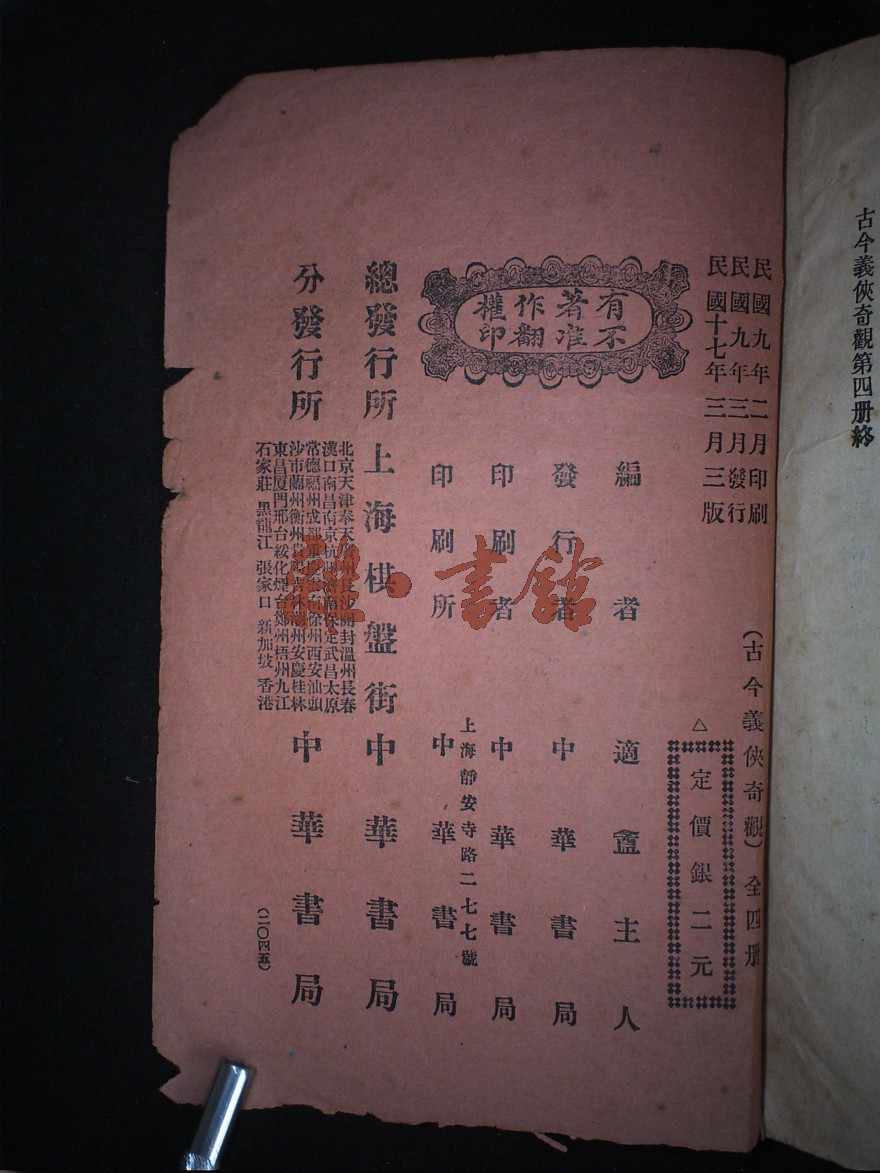 古今義俠奇觀第四册終
民國九年二月印刷
民國九年三月發行
民國十七年三月三版
(古今義俠奇觀)全四册
△定價銀二元
有著作權
不准翻印
編者 適盦主人
發行者 中華書局
印刷者 中華書局
上海靜安寺路二七七號
印刷所 中華書局
總發行所 上海棋盤街 中華書局
分發行所
北京天津奉天 州長沙開封溫州長春
漢口南昌南京杭 濟南保定武昌太原
常德福州成 南徐州西安汕頭
沙市蘭州衡州 吉林潮州安慶桂林
東昌厦門邢台綏化煙台鄭州梧州九江
石家莊 黑龍江 張家口 新加坡 香港
中華書局
(二〇四五)
雅·書館